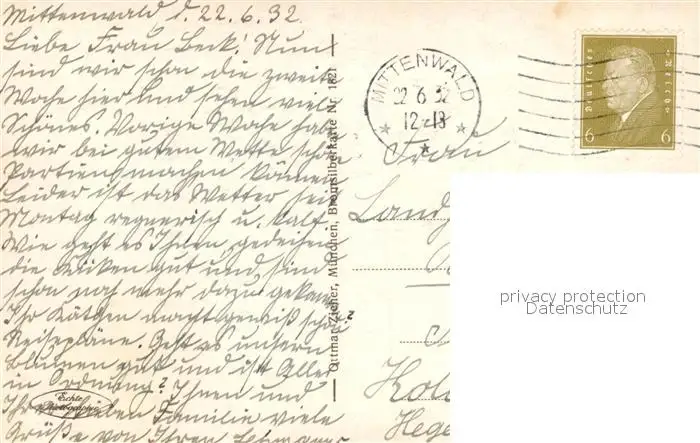 Mittenwald d. 22.6.32.
Liebe Frau Beck! Nun
sind wir schon die zweite
Woche hier und sehen viel
Schönes. Vorige Woche haben
wir bei gutem Wetter schöne
Partien machen können.
Leider ist das Wetter seit
Montag regnerisch u. kalt.
Wie geht es Ihnen, gedeihen
die Küken gut und sind
schon noch mehr dazu gekommen?
Ihr Kätchen macht gewiß schon
Reisepläne. Geht es unsern
Blumen gut und ist Alles
in Ordnung? Ihnen und
Ihrer lieben Familie viele
Grüße von Ihren
Echte Photographie
Ottmar Zieher, München, Bromsilberkarte Nr. 1821
MITTENWALD
22.6.32
12-13
Deutsches Reich
6 6
Frau
privacy protection
Datenschutz